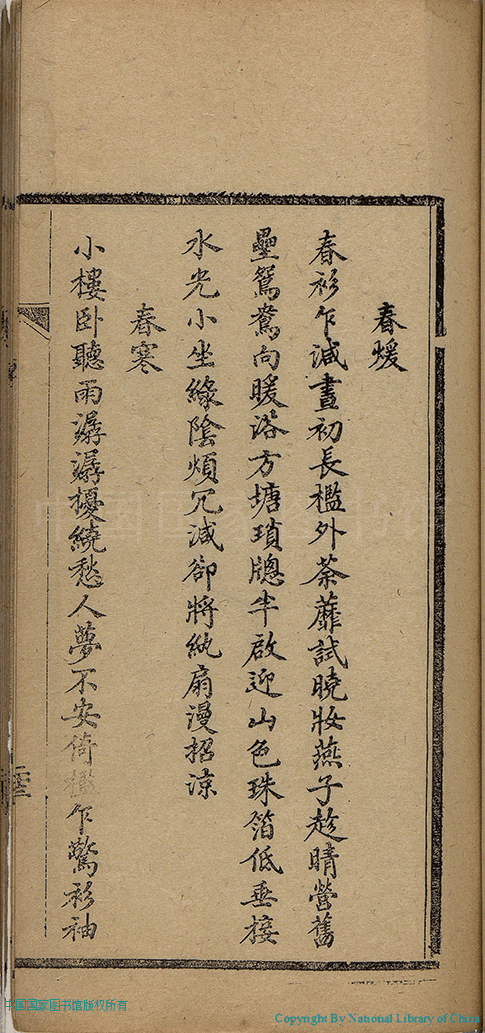 春煖
春衫乍減晝初長檻外荼蘼試曉妝燕子趁晴營舊
壘鴛鴦向暖浴方塘瑣牕半啟迎山色珠箔低垂接
水光小坐綠陰煩冗減卻將紈扇漫招涼
春寒
小樓卧聽雨潺潺擾繞愁人夢不安倚檻乍驚衫袖
中国国家图书馆版权所有
Copyright By National Library of China